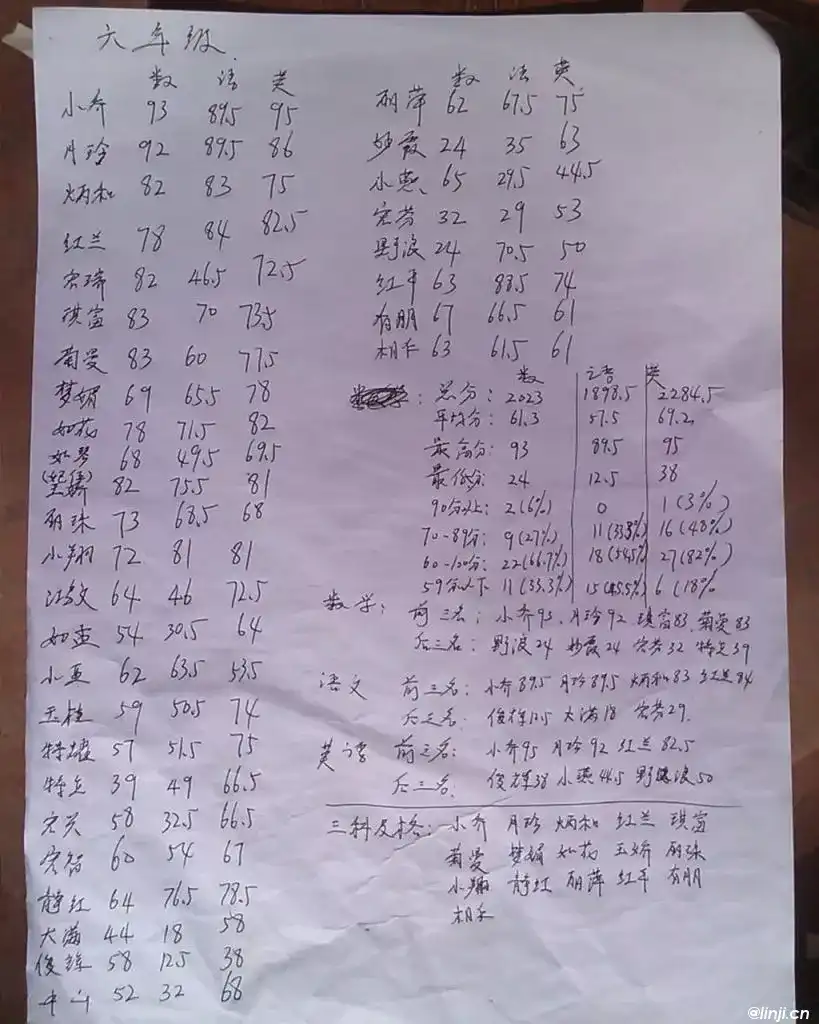 六年级
数 语 英
小乔 93 89.5 95
月玲 92 89.5 86
炳和 82 83 75
红兰 78 84 82.5
宏琦 82 46.5 72.5
琪富 83 70 73.5
菊曼 83 60 77.5
梦娟 69 65.5 78
如花 78 71.5 82
如琴 68 49.5 69.5
玉娇 82 75.5 81
丽珠 73 68.5 68
小翔 72 81 81
鸿文 64 46 72.5
如亚 54 30.5 64
小亚 62 63.5 53.5
玉桂 59 50.5 74
特耀 57 51.5 75
特立 39 49 66.5
58 32.5 66.5
宏智 60 54 67
静红 64 76.5 78.5
大满 44 18 58
俊辉 58 12.5 38
52 32 68
数 语 英
丽萍 62 67.5 75
妙霞 24 35 63
小燕 65 29.5 44.5
宏芳 32 29 53
野浪 24 70.5 50
红平 63 88.5 74
有朋 67 66.5 61
相禾 63 61.5 61
数 语 英
总分: 2023 1898.5 2284.5
平均分: 61.3 57.5 69.2
最高分: 93 89.5 95
最低分: 24 12.5 38
90分以上: 2(6%) 0 1(3%)
70-89分: 9(27%) 11(33.3%) 16(48%)
60-100分: 22(66.7%) 18(54.5%) 27(82%)
59分以下 11(33.3%) 15(45.5%) 6(18%
数学: 前三名: 小乔93、月玲92 琪富83、菊曼83
后三名: 野浪24 妙霞24 宏芳32 特立39
语文 前三名: 小乔89.5 月玲89.5 炳和83 红兰84
后三名: 俊辉12.5 大满18 宏芳29.
英语 前三名: 小乔95 月玲92 红兰82.5
后三名. 俊辉38 小燕44.5 野浪50
三科及格: 小乔 月玲 炳和 红兰 琪富
菊曼 梦娟 如花 玉娇 丽珠
小翔 静红 丽萍 红平 有朋
相禾
@linji.cn